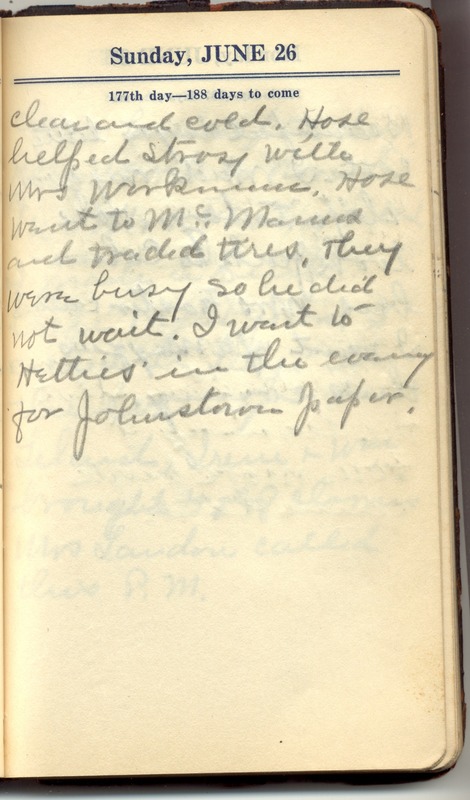 Sunday, JUNE 26
177th day—188 days to come
clear and cold. Hose
helped Strosy with
Mrs Workman. Hose
went to Mc. Manus
and traded tires, They
were busy so he did
not wait. I went to
Hetties' in the evening
for Johnstown paper.
Irene
brought
Mrs Landon called
this P.M.